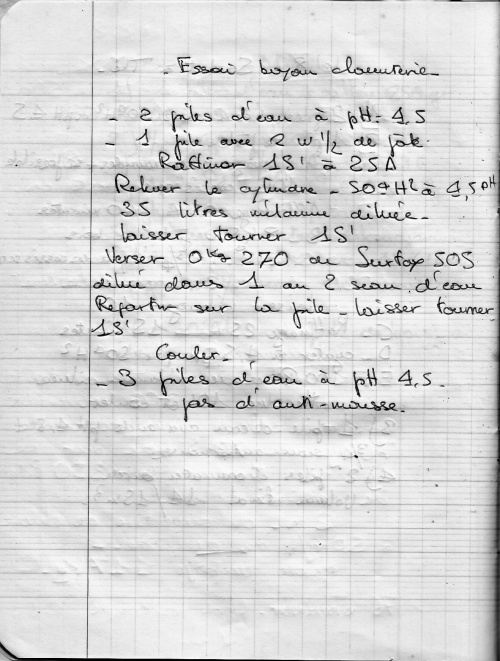 - Essai boyau clouterie -
- 2 piles d'eau à pH = 4,5
- 1 pile avec 2 w 1/2 de pâte.
Raffiner 15' à 25A
Relever le cylindre - SO4H2 à 4,5 pH
35 litres mélamine diluée -
laisser tourner 15'
Verser 0 Kg 270 de Surfax 505
dilué dans 1 ou 2 seau d'eau
Repartir sur la pile - laisser tourner
15'
Couler -
- 3 piles d'eau à pH 4,5 -
pas d'anti-mousse -